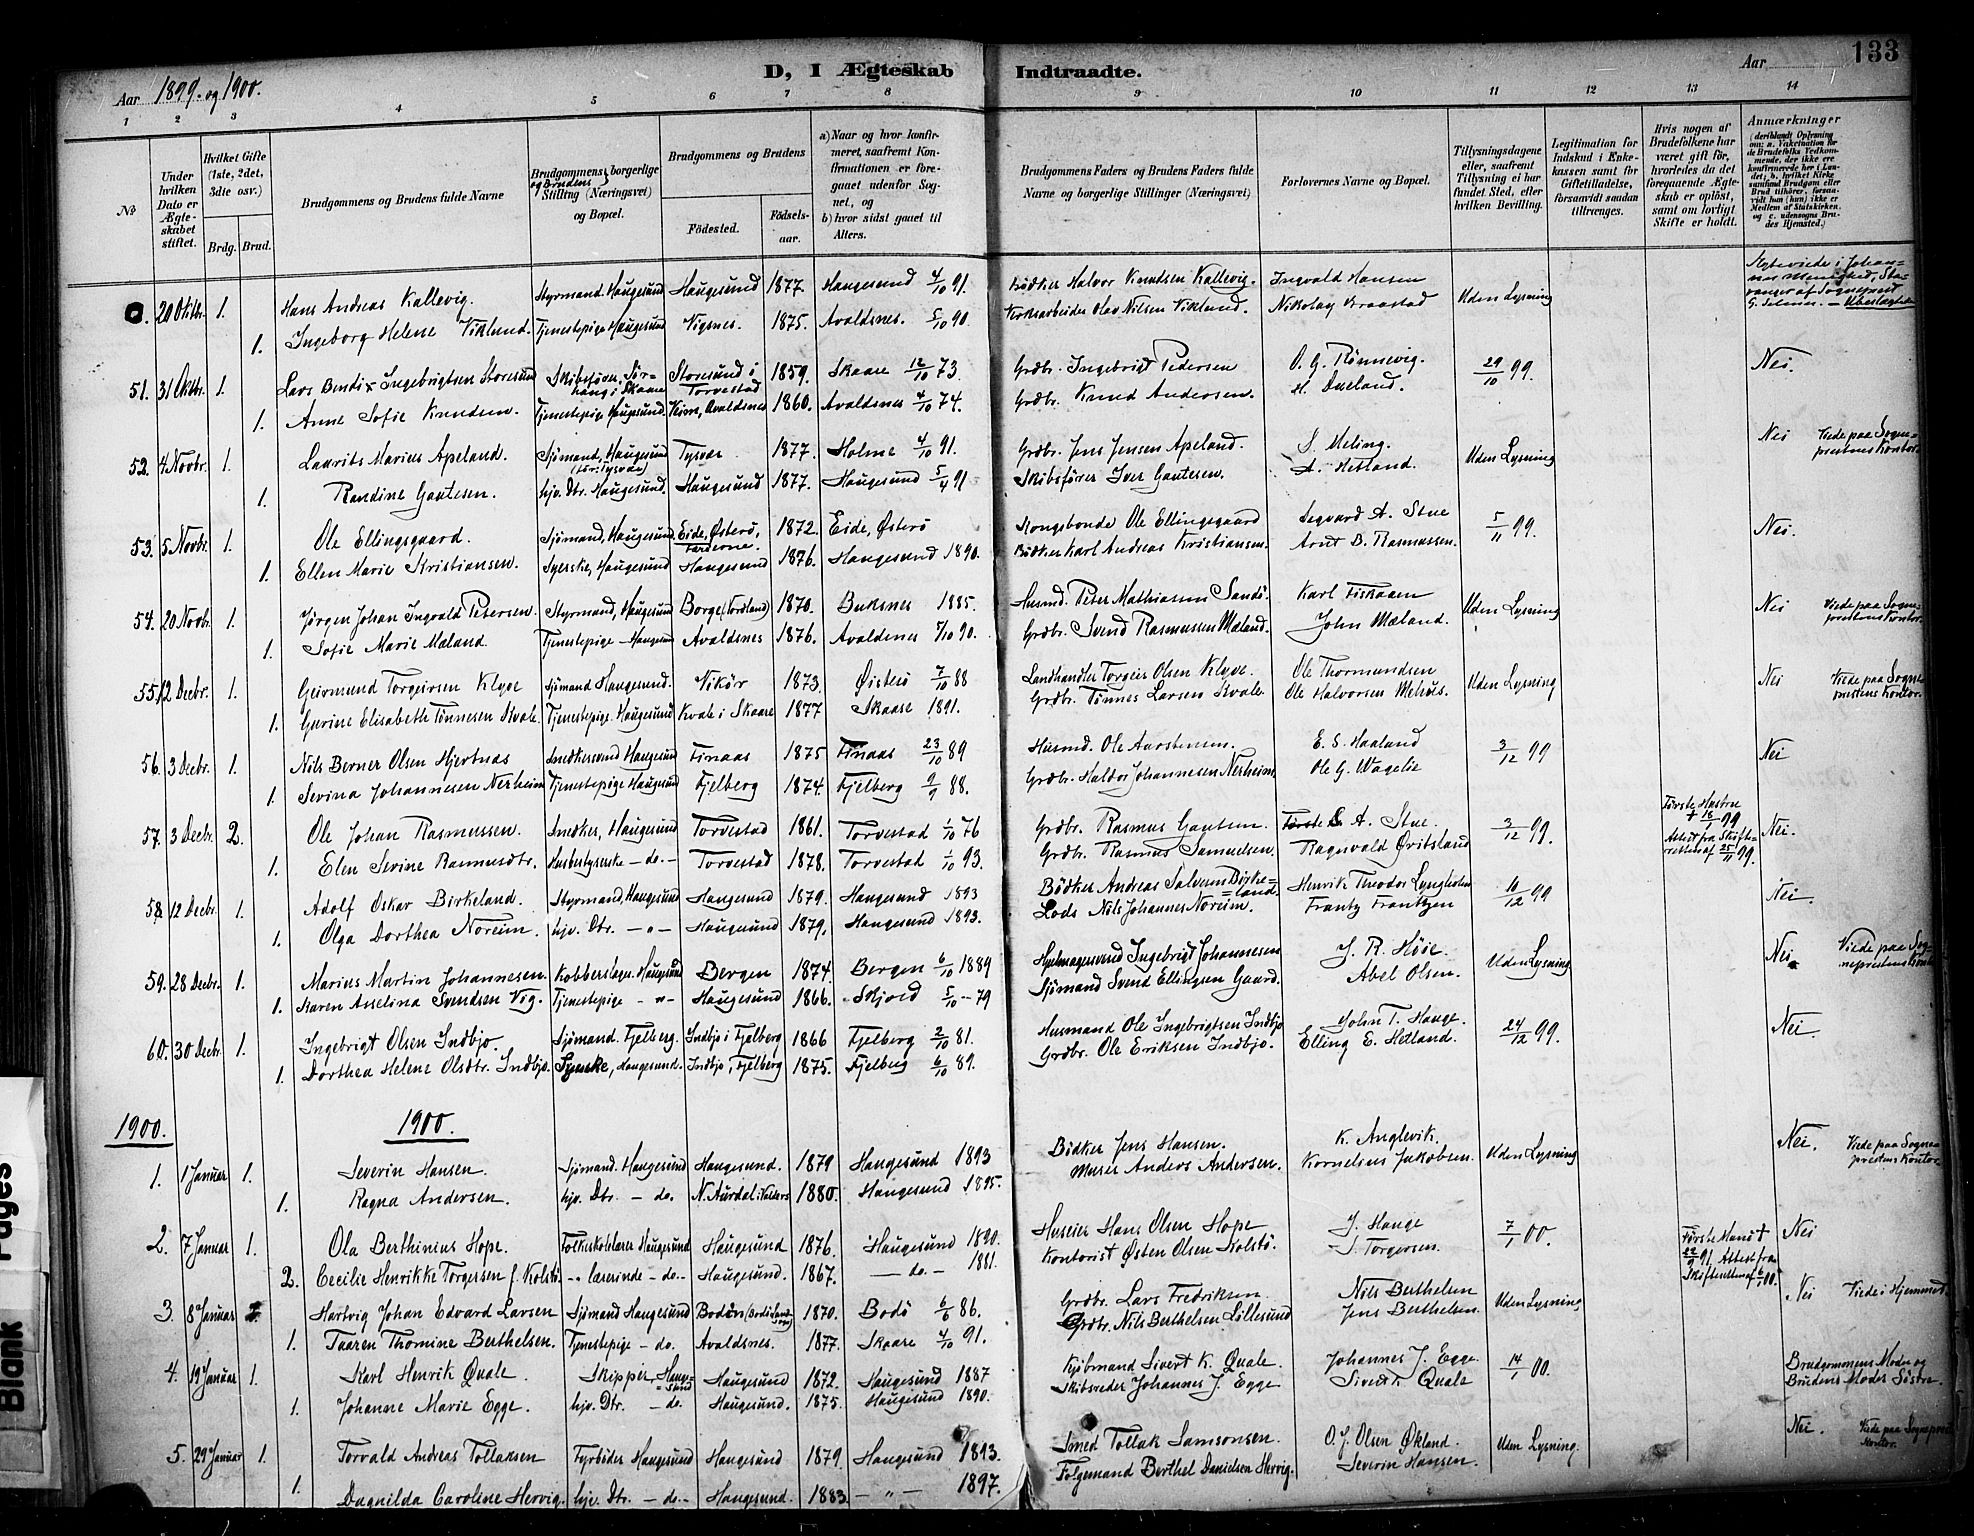 D, I Ægteskab Indtraadte.
133
Aar 1899. og 1900.
Aar
1 2 3 4 5 6 7 8 9 10 11 12 13 14
No
Under hvilken Dato er Ægteskabet stiftet.
Hvilket Gifte (1ste, 2det, 3die osv.)
Brdg. Brud.
Brudgommens og Brudens fulde Navne
Brudgommens og Brudens borgerlige Stilling (Næringsvei) og Bopæl.
Brudgommens og Brudens
Födested. Födselsaar.
a) Naar og hvor konfirmeret, saafremt Konfirmationen er foregaaet udenfor Sognet, og
b) hvor sidst gaaet til Alters.
Brudgommens Faders og Brudens Faders fulde Navne og borgerlige Stillinger (Næringsvei)
Forlovernes Navne og Bopæl.
Tillysningsdagene eller, saafremt Tillysning ei har fundet Sted, efter hvilken Bevilling.
Legitimation for Indskud i Enkekassen samt for Giftetilladelse, forsaavidt saadan tiltrænges.
Hvis nogen af Brudefolkene har været gift för, hvorledes da det foregaaende Ægteskab er oplöst, samt om lovligt Skifte er holdt.
Anmærkninger (deriblandt Oplysning om: a. Vakcination for de Brudefolks Vedkommende, der ikke ere konfirmerede her i Landet; b. hvilket Kirkesamfund Brudgom eller Brud tilhörer, forsaavidt han (hun) ikke er Medlem af Statskirken, og c. udensogns Brudes Hjemsted.)
20 Oktbr. 1. Hans Andreas Kallevig. Styrmand, Haugesund Haugesund 1877. Haugesund 4/10 91. Bödker Halvor Knudsen Kallevig. Ingvald Hansen Uden Lysning
1. Ingeborg Helene Viklund. Tjenestepige Haugesund Vigsnes. 1875. Avaldsnes. 5/10 90. Olav Nilsen Viklund. Nikolay Braastad
51. 31 Oktbr. 1. Lars Bendix Ingebrigtsen Storesund Storesund i Torvestad 1859. Skaare 12/10 73. Grdbr. Ingebrigt Pedersen O. G. Rönnevig. 29/10 99. Nei.
1. Anne Sofie Knudsen. Tjenestepige Haugesund. Avaldsnes 1860. Avaldsnes 4/10 74. Grdbr. Knud Andersen.
52. 4 Novbr. 1. Laurits Marius Apeland. Sjömand, Haugesund (för: Tysvær) Tysvær 1877. Holme 4/10 91. Grdbr. Jens Jensen Apeland. S. Meling. Uden Lysning Nei Viede paa Sogneprestens Kontor.
1. Randine Gautesen. hjv. Dtr. Haugesund. Haugesund 1877. Haugesund 5/4 91 Skibsförer Iver Gautesen. A. Hetland.
53. 5 Novbr. 1. Ole Ellingsgaard. Sjömand, Haugesund Eide, Österö, Færöerne. 1872. Eide, Österö Kongsbonde Ole Ellingsgaard Segvard A. Stue 5/11 99. Nei.
1. Ellen Marie Kristiansen. Syerske, Haugesund Haugesund 1876. Haugesund 1890. Bödker Karl Andreas Kristiansen. Arnt B. Rasmussen.
54. 20 Novbr. 1. Jörgen Johan Ingvald Petersen. Styrmand, Haugesund Borge (Nordland) 1870. Buksnes 1885. Husmd. Peter Mathiasen Sandö. Karl Fiskaaen Uden Lysning Nei Viede paa Sogneprestens Kontor.
1. Sofie Marie Mæland. Tjenestepige Haugesund Avaldsnes 1876. Avaldsnes 5/10 90. Grdbr. Svend Rasmussen Mæland. John Mæland.
55. 12 Decbr. 1. Geirmund Torgeirsen Klyve Sjömand Haugesund. Vikör 1873. Öistesö 7/10 88 Landhandler Torgeir Olsen Klyve. Ole Thormundsen Uden Lysning Nei Viede paa Sogneprestens Kontor.
1. Gurine Elisabeth Tönnesen Kvale. Tjenestepige. Haugesund Kvale i Skaare 1877 Skaare 1891. Grdbr. Tönnes Larsen Kvale. Ole Halvorsen Mehus.
56. 3 Decbr. 1. Nils Berner Olsen Hjertnas Snedkersvend Haugesund Finaas 1875 Finaas 23/10 89 Husmd. Ole Aarstensen. E. S. Haaland 3/12 99 Nei
1. Sevina Johannesen Nerheim Tjenestepige Haugesund Fjelberg 1874. Fjelberg 9/9 88. Grdbr. Haldor Johannesen Nerheim Ole G. Wagelie
57. 3 Decbr. 2. Ole Johan Rasmussen. Snedker, Haugesund Torvestad 1861. Torvestad 1/10 76 Grdbr. Rasmus Gautsen. A. Stue. 3/12 99. Attest fra Skifteretten af 25/11 99. Nei.
1. Elen Sevine Rasmusdtr. Husbestyrerske - do. - Torvestad 1878. Torvestad 1/10 93. Grdbr. Rasmus Samuelsen. Ragnvald Öritsland
58. 12 Decbr. 1. Adolf Oskar Birkeland. Styrmand, Haugesund Haugesund 1879. Haugesund 1893 Bödker Andreas Salvesen Birkeland. Henrik Theodor Lyngholm 10/12 99 Nei.
1. Olga Dorthea Noreim. hjv. Dtr. - " - Haugesund 1879. Haugesund 1893. Lods Nils Johannes Noreim. Frantz Frantzen
59. 28 Decbr. 1. Marius Martin Johannesen. Kobberslager. Haugesund Bergen 1874. Bergen 6/10 1889 Hjulmagersvend Ingebrigt Johannesen J. R. Höie. Uden Lysning. Nei. Viede paa Sogneprestens Kontor
1. Karen Asselina Svendsen Vig. Tjenestepige - " - Haugesund 1866. Skjold 5/10 - 79 Sjömand Svend Ellingsen Gaard. Abel Olsen.
60. 30 Decbr. 1. Ingebrigt Olsen Indbjo. Sjömand. Fjelberg. Indbjo i Fjelberg 1866 Fjelberg 2/10 81. Husmand Ole Ingebrigtsen Indbjo John T. Hauge. 24/12 99. Nei
1. Dorthea Helene Olsdtr. Indbjo. Syerske, Haugesund. Indbjo, Fjelberg 1875. Fjelberg 6/10 89. Grdbr. Ole Eriksen Indbjo. Elling E. Hetland.
1900. 1900.
1. 1 Januar 1. Severin Hansen. Sjömand. Haugesund Haugesund. 1879 Haugesund 1893 Bödker Jens Hansen. K. Anglevik. Uden Lysning Nei. Viede paa Sogneprestens Kontor.
1. Ragna Andersen. hjv. Dtr. - do. N. Aurdal i Valders 1880. Haugesund 1895. Murer Anders Andersen. Kornelius Jakobsen.
2. 7 Januar 1. Ola Berthinius Hope. Folkeskolelærer Haugesund Haugesund 1876. Haugesund 1890. Huseier Hans Olsen Hope J. Hauge 7/1 00. Förste Mand + 22/9 91, Attest fra Skifteretten af 6/1 00. Nei
2. Cecilie Henrikke Torgersen f. Kolstö - " lærerinde - do - Haugesund. 1867. - do. - 1881. Kontorist Östen Olsen Kolstö. J. Torgersen.
3. 8 Januar Hartvig Johan Edvard Larsen Sjömand Haugesund 1870. Bodö 6/6 86. Grdbr. Lars Fredriksen. Nils Berthelsen Uden Lysning Nei Viede i Hjemmet.
1. Taaren Thomine Berthelsen. Tjenestepige - do. Avaldsnes. 1877. Skaare 4/10 91. Grdbr. Nils Berthelsen Lillesund Jens Berthelsen.
4. 19 Januar 1. Karl Henrik Quale. Skipper, Haugesund Haugesund 1872. Haugesund 1887 Kjöbmand Sivert K. Quale. Johannes J. Egge. 14/1 00. Brudgommens Moder og Brudens Moder Söstre.
1. Johanne Marie Egge. hjv. Dtr. - do. Haugesund. 1875. Haugesund 1890. Skibsreder Johannes J. Egge Sivert K. Quale
5. 29 Januar 1. Torvald Andreas Tollaksen Fyrböder Haugesund Haugesund 1879. Haugesund 1893. Smed Tollak Samsonsen. O. J. Olsen Ökland. Uden Lysning. Nei. Viede paa Sogneprest. Kontor.
1. Dagnilda Caroline Hervig. hjv. Dtr. - do. - Haugesund. 1883. - " - 1897. Folgemand Berthel Danielsen Hervig. Severin Hansen.
Blank Pages